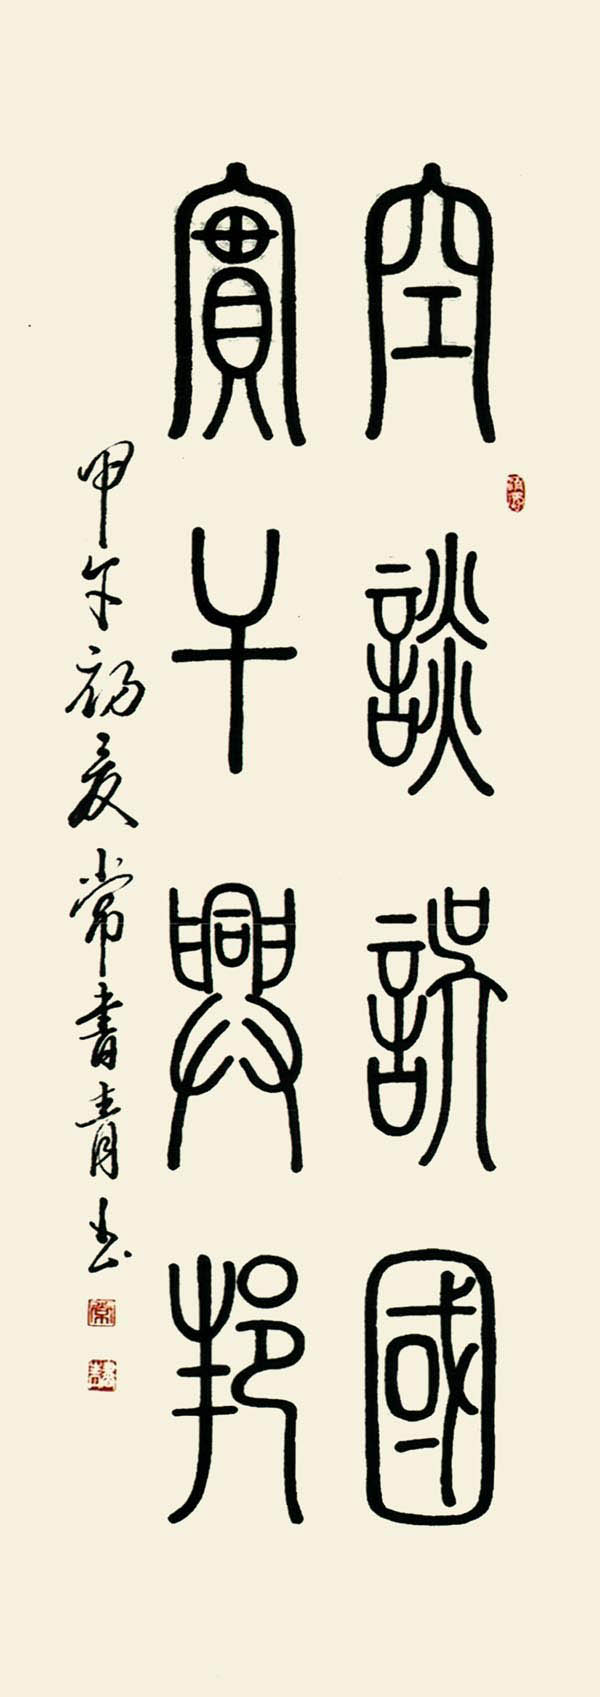 空談誤國
實干興邦
甲午初夏常書青书